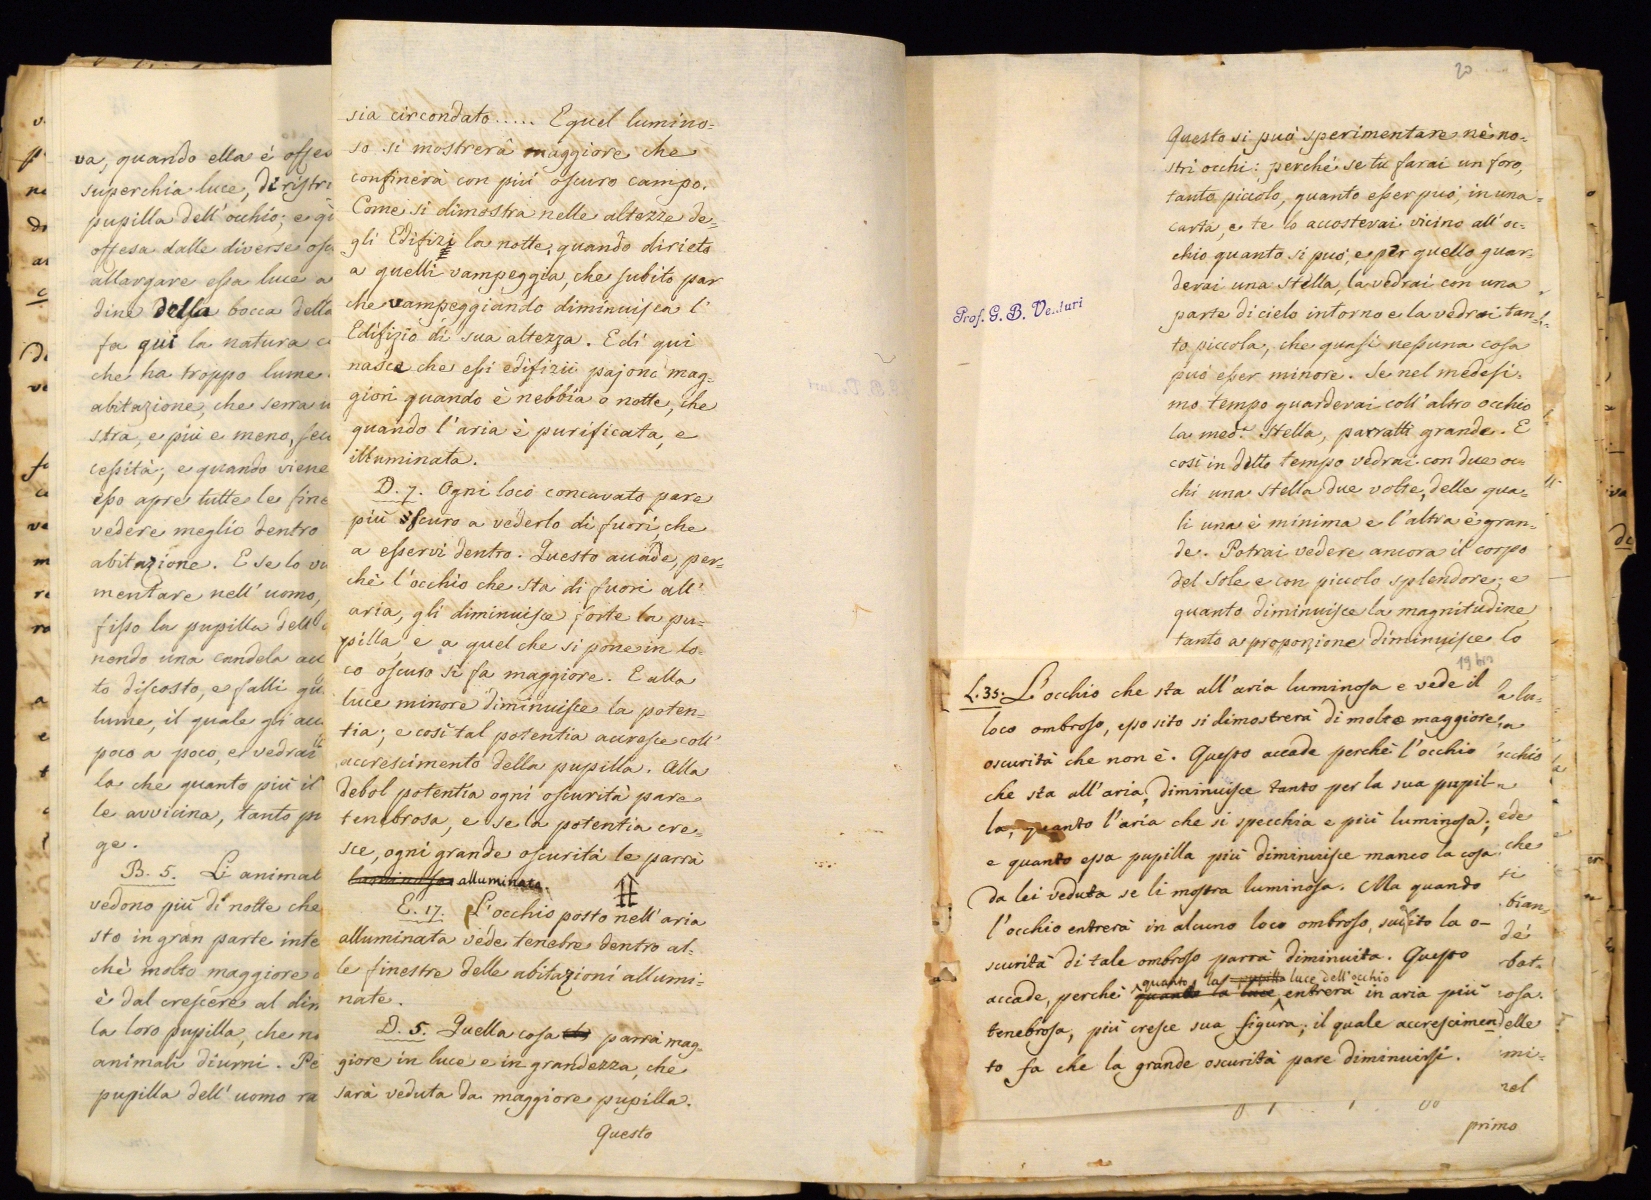 va, quando ella è offes
superchia luce, di ristri
pupilla dell'occhio; e
offesa dalle diverse
allargare essa luce a
dine della bocca della
fa qui la natura
che ha troppo lume
abitazione, che serra
stra, e più e meno,
cessità; e quando viene
esso apre tutte le fine
vedere meglio dentro
abitazione. E se lo
mentare nell'uomo,
fisso la pupilla dell'
nendo una candela
to discosto, e falli
lume, il quale gli
poco a poco, e vedrai
la che quanto più il
le avvicina, tanto
ge.
B. 5. Li animal
vedono più di notte che
sto in gran parte inte
chè molto maggiore
è dal crescere al dim
la loro pupilla, che
animali diurni. Pe
pupilla dell'uomo
sia circondato ..... E quel lumino=
so si mostrerà maggiore che
confinerà con più oscuro campo.
Come si dimostra nelle altezze de=
gli Edifizi la notte, quando dirieto
a quelli vampeggia, che subito par
che vampeggiando diminuisca l'
Edifizio di sua altezza. E di qui
nasce che essi edifizii pajono mag=
giori quando è nebbia o notte, che
quando l'aria è purificata, e
illuminata.
D. 7. Ogni loco concavato pare
più oscuro a vederlo di fuori, che
a esservi dentro. Questo accade, per=
chè l'occhio che sta di fuori all'
aria, gli diminuisce forte la pu=
pilla, e a quel che si pone in lo=
co oscuro si fa maggiore. E alla
luce minore diminuisce la poten=
tia; e così tal potentia accresce coll'
accrescimento della pupilla. Alla
debol potentia ogni oscurità pare
tenebrosa, e se la potentia cre=
sce, ogni grande oscurità le parrà
luminosa alluminata.
E. 17. L'occhio posto nell'aria
alluminata vede tenebre dentro al=
le finestre delle abitazioni allumi=
nate.
D. 5. Quella cosa parrà mag=
giore in luce e in grandezza, che
sarà veduta da maggiore pupilla.
Questo
20
Prof. G. B. Venturi
Questo si può sperimentare nè no=
stri occhi: perchè se tu farai un foro,
tanto piccolo, quanto esser può, in una
carta, e te lo accosterai vicino all'oc=
chio quanto si può, e per quello guar=
derai una Stella, la vedrai con una
parte di cielo intorno e la vedrai tan=
to piccola, che quasi nessuna cosa
può esser minore. Se nel medesi=
mo tempo guarderai coll'altro occhio
la med.ª Stella, parratti grande. E
così in ditto tempo vedrai con due oc=
chi una Stella due volte, delle qua=
li una è minima e l'altra è gran=
de. Potrai vedere ancora il corpo
del Sole e con piccolo splendore; e
quanto diminuisce la magnitudine
tanto a proporzione diminuisce lo
19 bis
L. 35. L'occhio che sta all'aria luminosa e vede il
loco ombroso, esso sito si dimostrerà di molto maggiore
oscurità che non è. Questo accade perchè l'occhio
che sta all'aria, diminuisce tanto per la sua pupil=
la, quanto l'aria che si specchia e più luminosa;
e quanto essa pupilla più diminuisce manco la cosa
da lei veduta se li mostra luminosa. Ma quando
l'occhio entrerà in alcuno loco ombroso, subito la o-
scurità di tale ombroso parrà diminuita. Questo
quanto la pupilla luce dell'occhio
accade, perchè quanto la luce entrerà in aria più
tenebrosa, più cresce sua figura; il quale accrescimen
to fa che la grande oscurità pare diminuirsi.
a lu=
a
cchio
ede
che
si
bian=
dè
bat=
osa.
elle
mi=
nel
primo